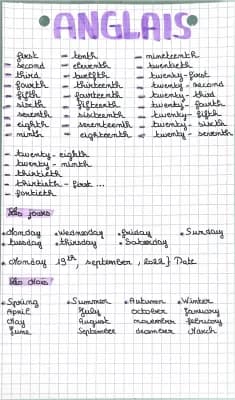 ANGLAIS
- first - tenth - nineteenth
- second - eleventh - twentieth
- third - twelfth - twenty-first
- fourth - thirteenth - twenty-second
- fifth - fourteenth - twenty-third
- sixth - fifteenth - twenty-fourth
- seventh - sixteenth - twenty-fifth
- eighth - seventeenth - twenty-sixth
- ninth - eighteenth - twenty-seventh
- twenty-eighth
- twenty-ninth
- thirtieth
- thirtieth-first ...
- fortieth
Les jours
• Monday • Wednesday • friday • Sunday
• tuesday • thursday • Saturday
• Monday 19th, september, 2022 } Date
Les mois
• Spring • Summer • Autumn • Winter
April July October january
May August november february
June September december March